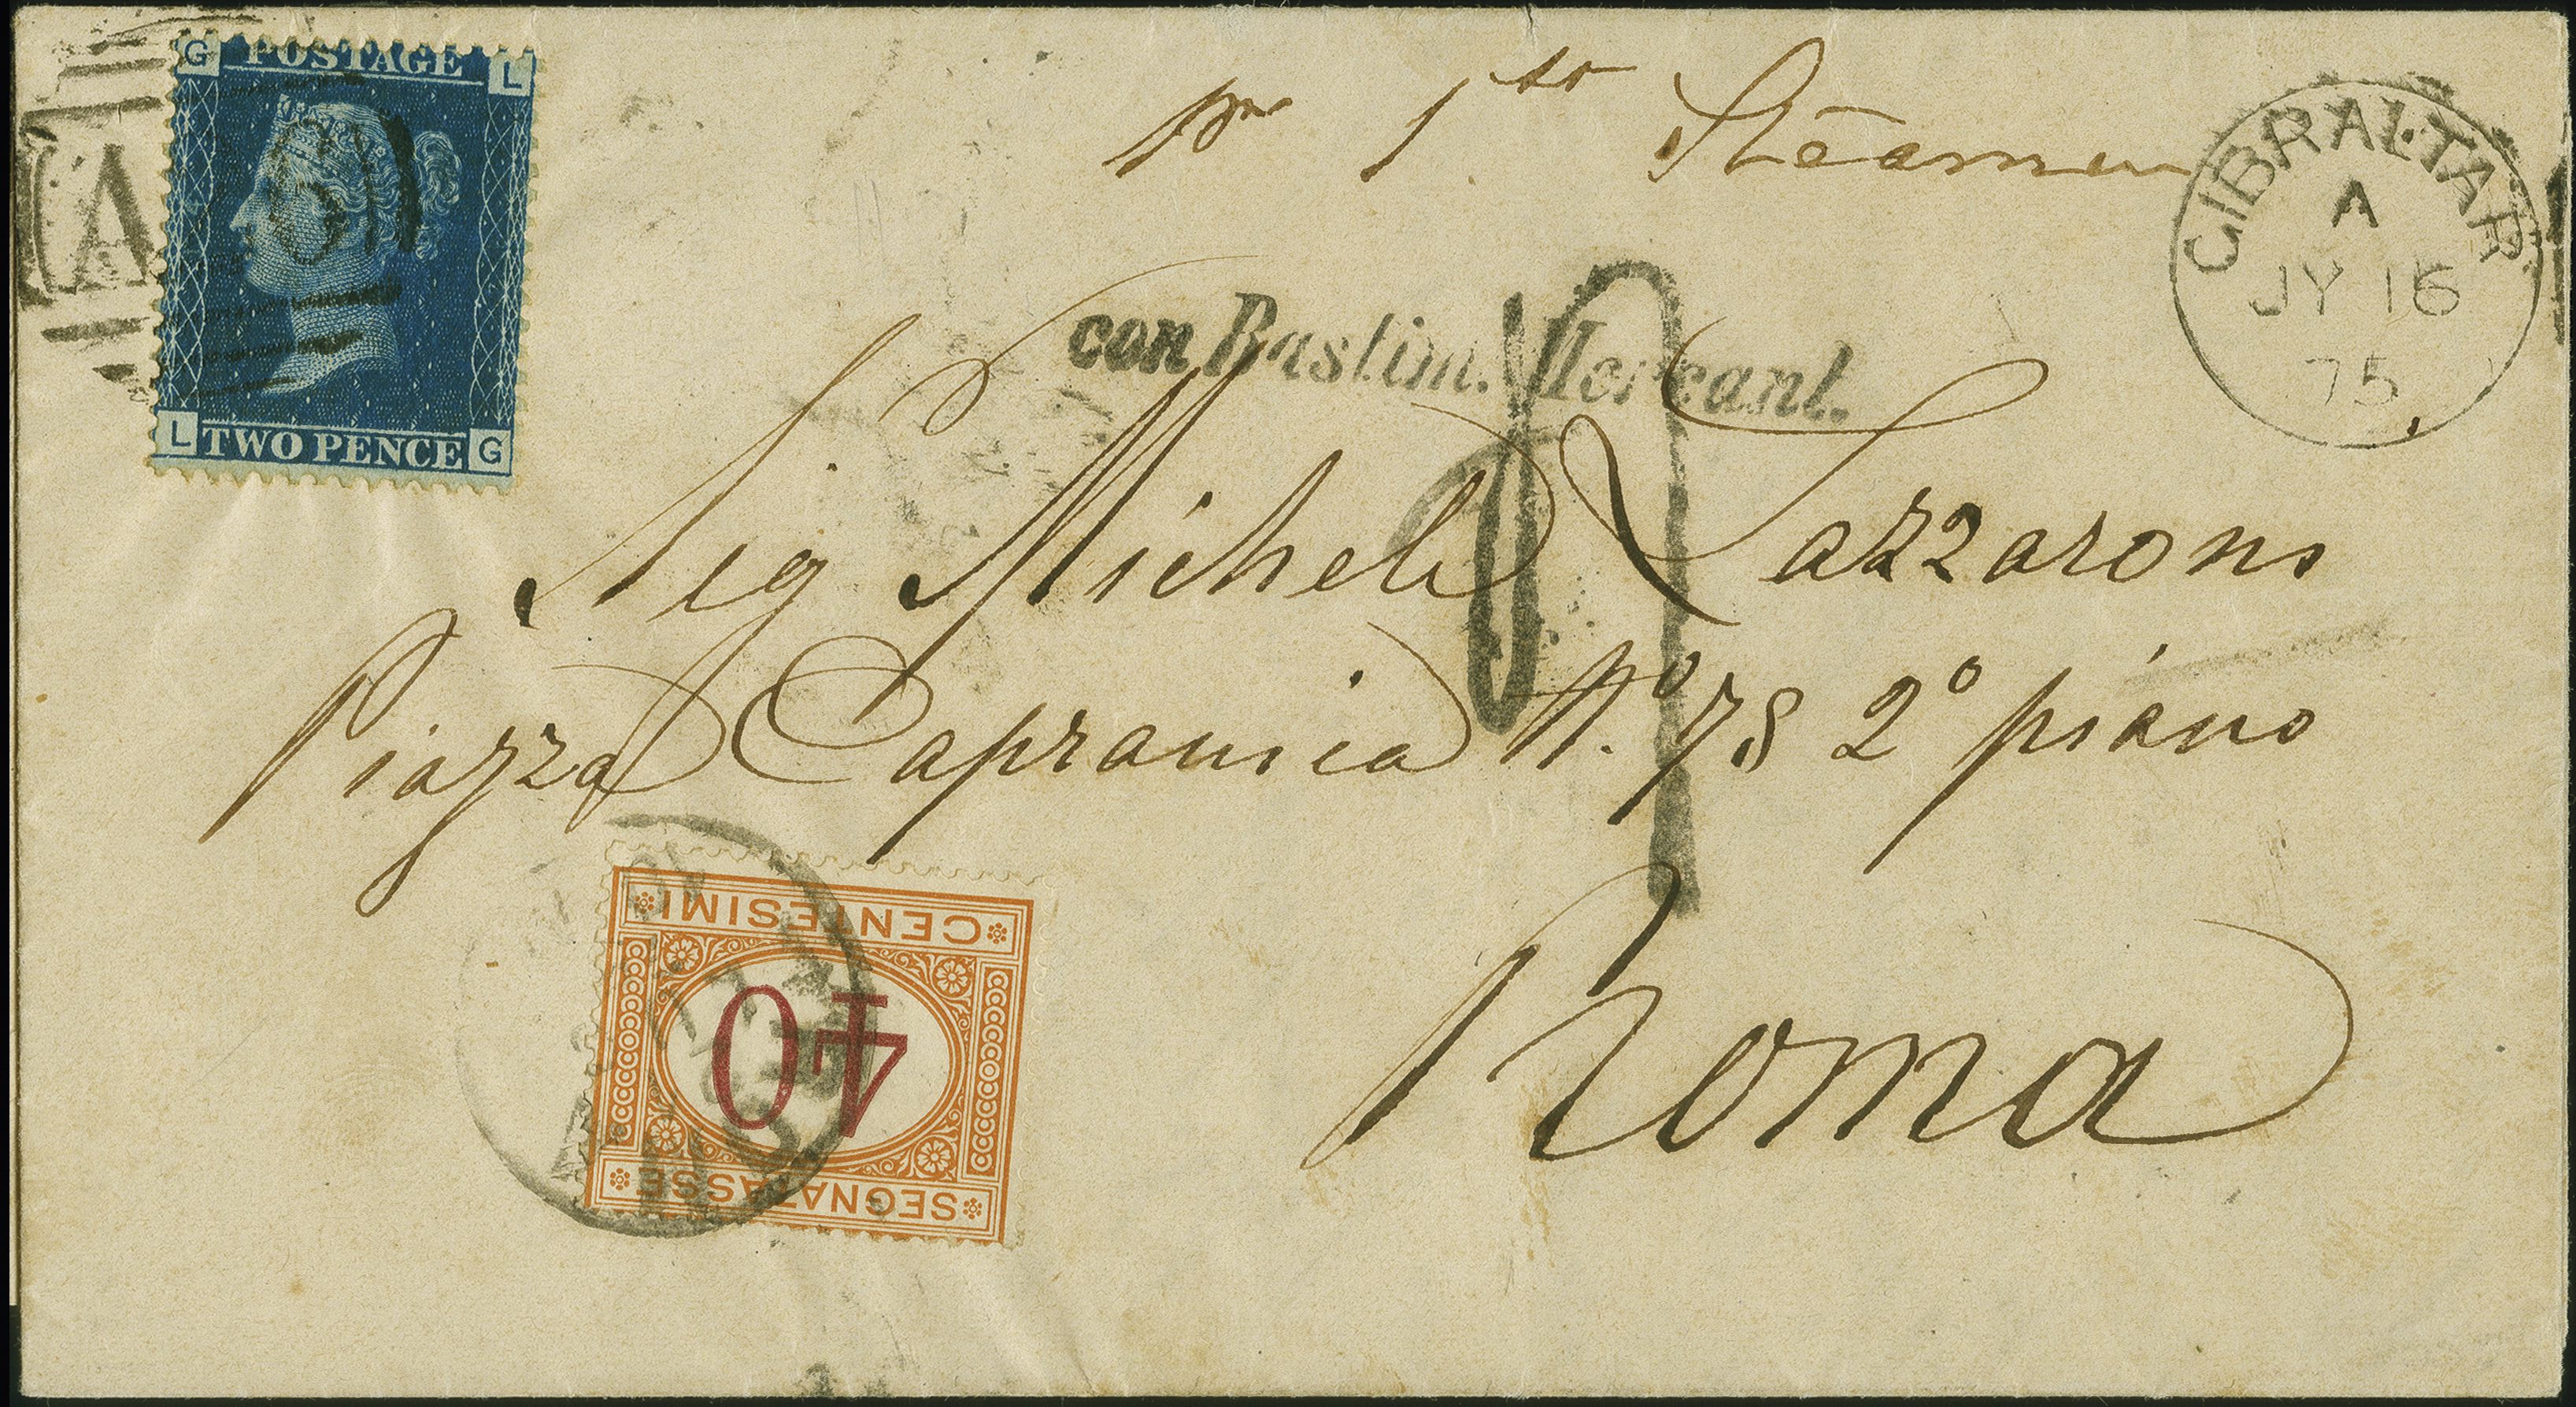 G POSTAGE L
A
6
L TWO PENCE G
pr 1st Steamer
GIBRALTAR
A
JY 16
75
con Bastim. Mercant.
Sig Michele Lazzaroni
Piazza Capranica No. 78 2o piano
Roma
CENTESIMI
40
SEGNATASSE